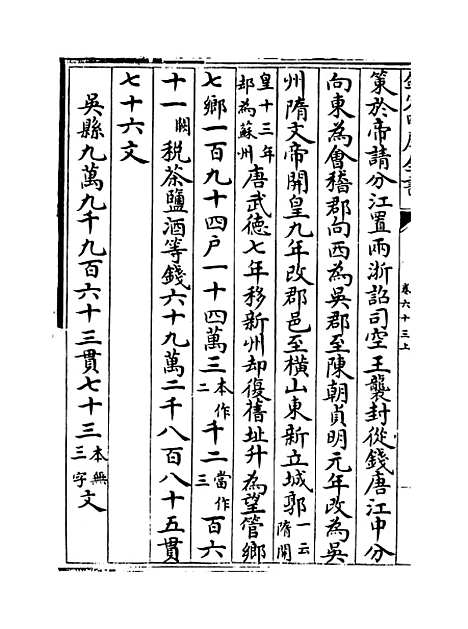 策於帝請分江置兩浙詔司空王襲封從錢唐江中分
向東為會稽郡向西為吳郡至陳朝貞明元年改為吳
州隋文帝開皇九年改郡邑至橫山東新立城郭一云隋開
皇十三年却為蘇州唐武德七年移新州却復舊址升為望管鄉
七鄉一百九十四戶一十四萬三本作二千二當作三百六
十一闕税茶鹽酒等錢六十九萬二千八百八十五貫
七十六文
吳縣九萬九千九百六十三貫七十三本無三字文
卷六十三上